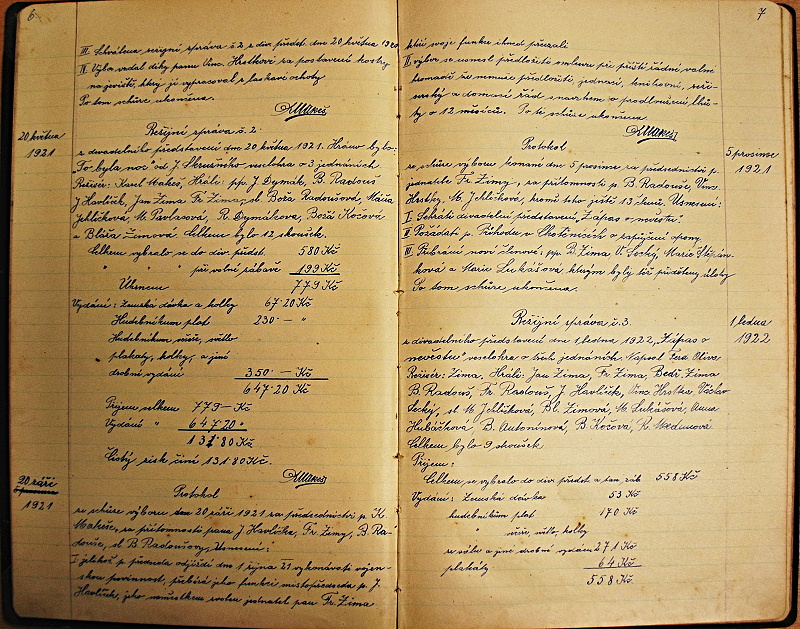 6
III. Schválena režijní správa č. 2 z div. předst. dne 20 května 1920
IV. Výbor vzdal díky panu Vinc. Hrstkovi za postavení kostry
na jeviště, který ji vypracoval s laskavé ochoty
Po tom schůze ukončena.
KMakeš
20 května
1921
Režijní správa č. 2
z divadelního představení dne 20 května 1921. Hráno bylo:
"To byla noc" od J. Skružného veselohra o 3 jednáních
Režisér: Karel Makeš, Hráli: pp. J Dymák, B. Radouš
J Havlíček, Jan Zima Fr Zima, sl. Boža Radoušová, Máňa
Jehličková, M. Pavlasová, R. Dymáková, Boža Kočová
a Bláža Zimová. Celkem bylo 12 zkoušek.
Celkem vybralo se do div. předst. 580 Kč
" " " při volné zábavě 199 Kč
Úhrnem 779 Kč
Vydání: Zemská dávka a kolky 67·20 Kč
Hudebníkum plat 230·— "
Hudebníkum véči, světlo
plakáty, kolky, a jiné
drobné vydání 350·— Kč
647·20 Kč
Příjem celkem 779— Kč
Vydání " 647·20 "
131·80 Kč
Čistý zisk činí 131·80 Kč.
KMakeš
20 září
1921
Protokol
ze schůze výboru dne 20 září 1921 za předsednictví p. K
Makeše, za přítomnosti pana J Havlíčka, Fr. Zimy, B. Ra-
douše, sl B. Radoušovy, Usnesení:
I. jelikož p. předseda odjíždí dne 1 října 21 vykonávati vojen-
skou povinnost, přebírá jeho funkci místopředseda p. J.
Havlíček, jeho náměstkem zvolen jednatel pan Fr. Zima
7
kteří svoje funkce ihned převzali
II výbor se usnesl předložiti valné hromadě při příští řádné valné
hromadě že nemuže předložiti, jednací, knihovní, reži-
sérský a domácí řád s návrhem o prodloužení lhů-
ty o 12 měsíců. Po té schůze ukončena.
KMakeš
5 prosince
1921
Protokol
ze schůze výboru konané dne 5 prosince za předsednictví p.
jednatele Fr. Zimy, za přítomnosti p. B Radouše, Vinc.
Hrstky, M. Jehličkové, kromě toho ještě 13 členů. Usnesení:
I. Sehráti divadelní představení "Zápas o nevěstu".
II Požádati p. Příhodu v Chotěnicích o zapůjčení opony.
III. Přibrání noví členové: pp. B. Zima V Secký, Marie Štěpán-
ková a Marie Lukášová kterým byly též přiděleny úlohy
Po tom schůze ukončena.
1 ledna
1922
Režijní správa č. 3.
z divadelního představení dne 1 ledna 1922, "Zápas o
nevěstu" veselohra o třech jednáních. Napsal Fera Oliva
Režisér: Zima, Hráli: Jan Zima, Fr. Zima, Bedř. Zima
B. Radouš, Fr Radouš, J Havlíček, Vinc Hrstka, Václav
Secký, sl. M. Jehličková Bl. Zimová, M. Lukášová, Anna
Hubáčková, B. Antonínová, B Kočová, R.
Celkem bylo 9 zkoušek
Příjem:
Celkem se vybralo do div předst a zan záb 558 Kč
Vydání: Zemská dávka 53 Kč
hudebníkům plat 170 Kč
véči, světlo, kolky
ze sálu a jiné drobné vydání 271 Kč
plakáty 64 Kč
558 Kč